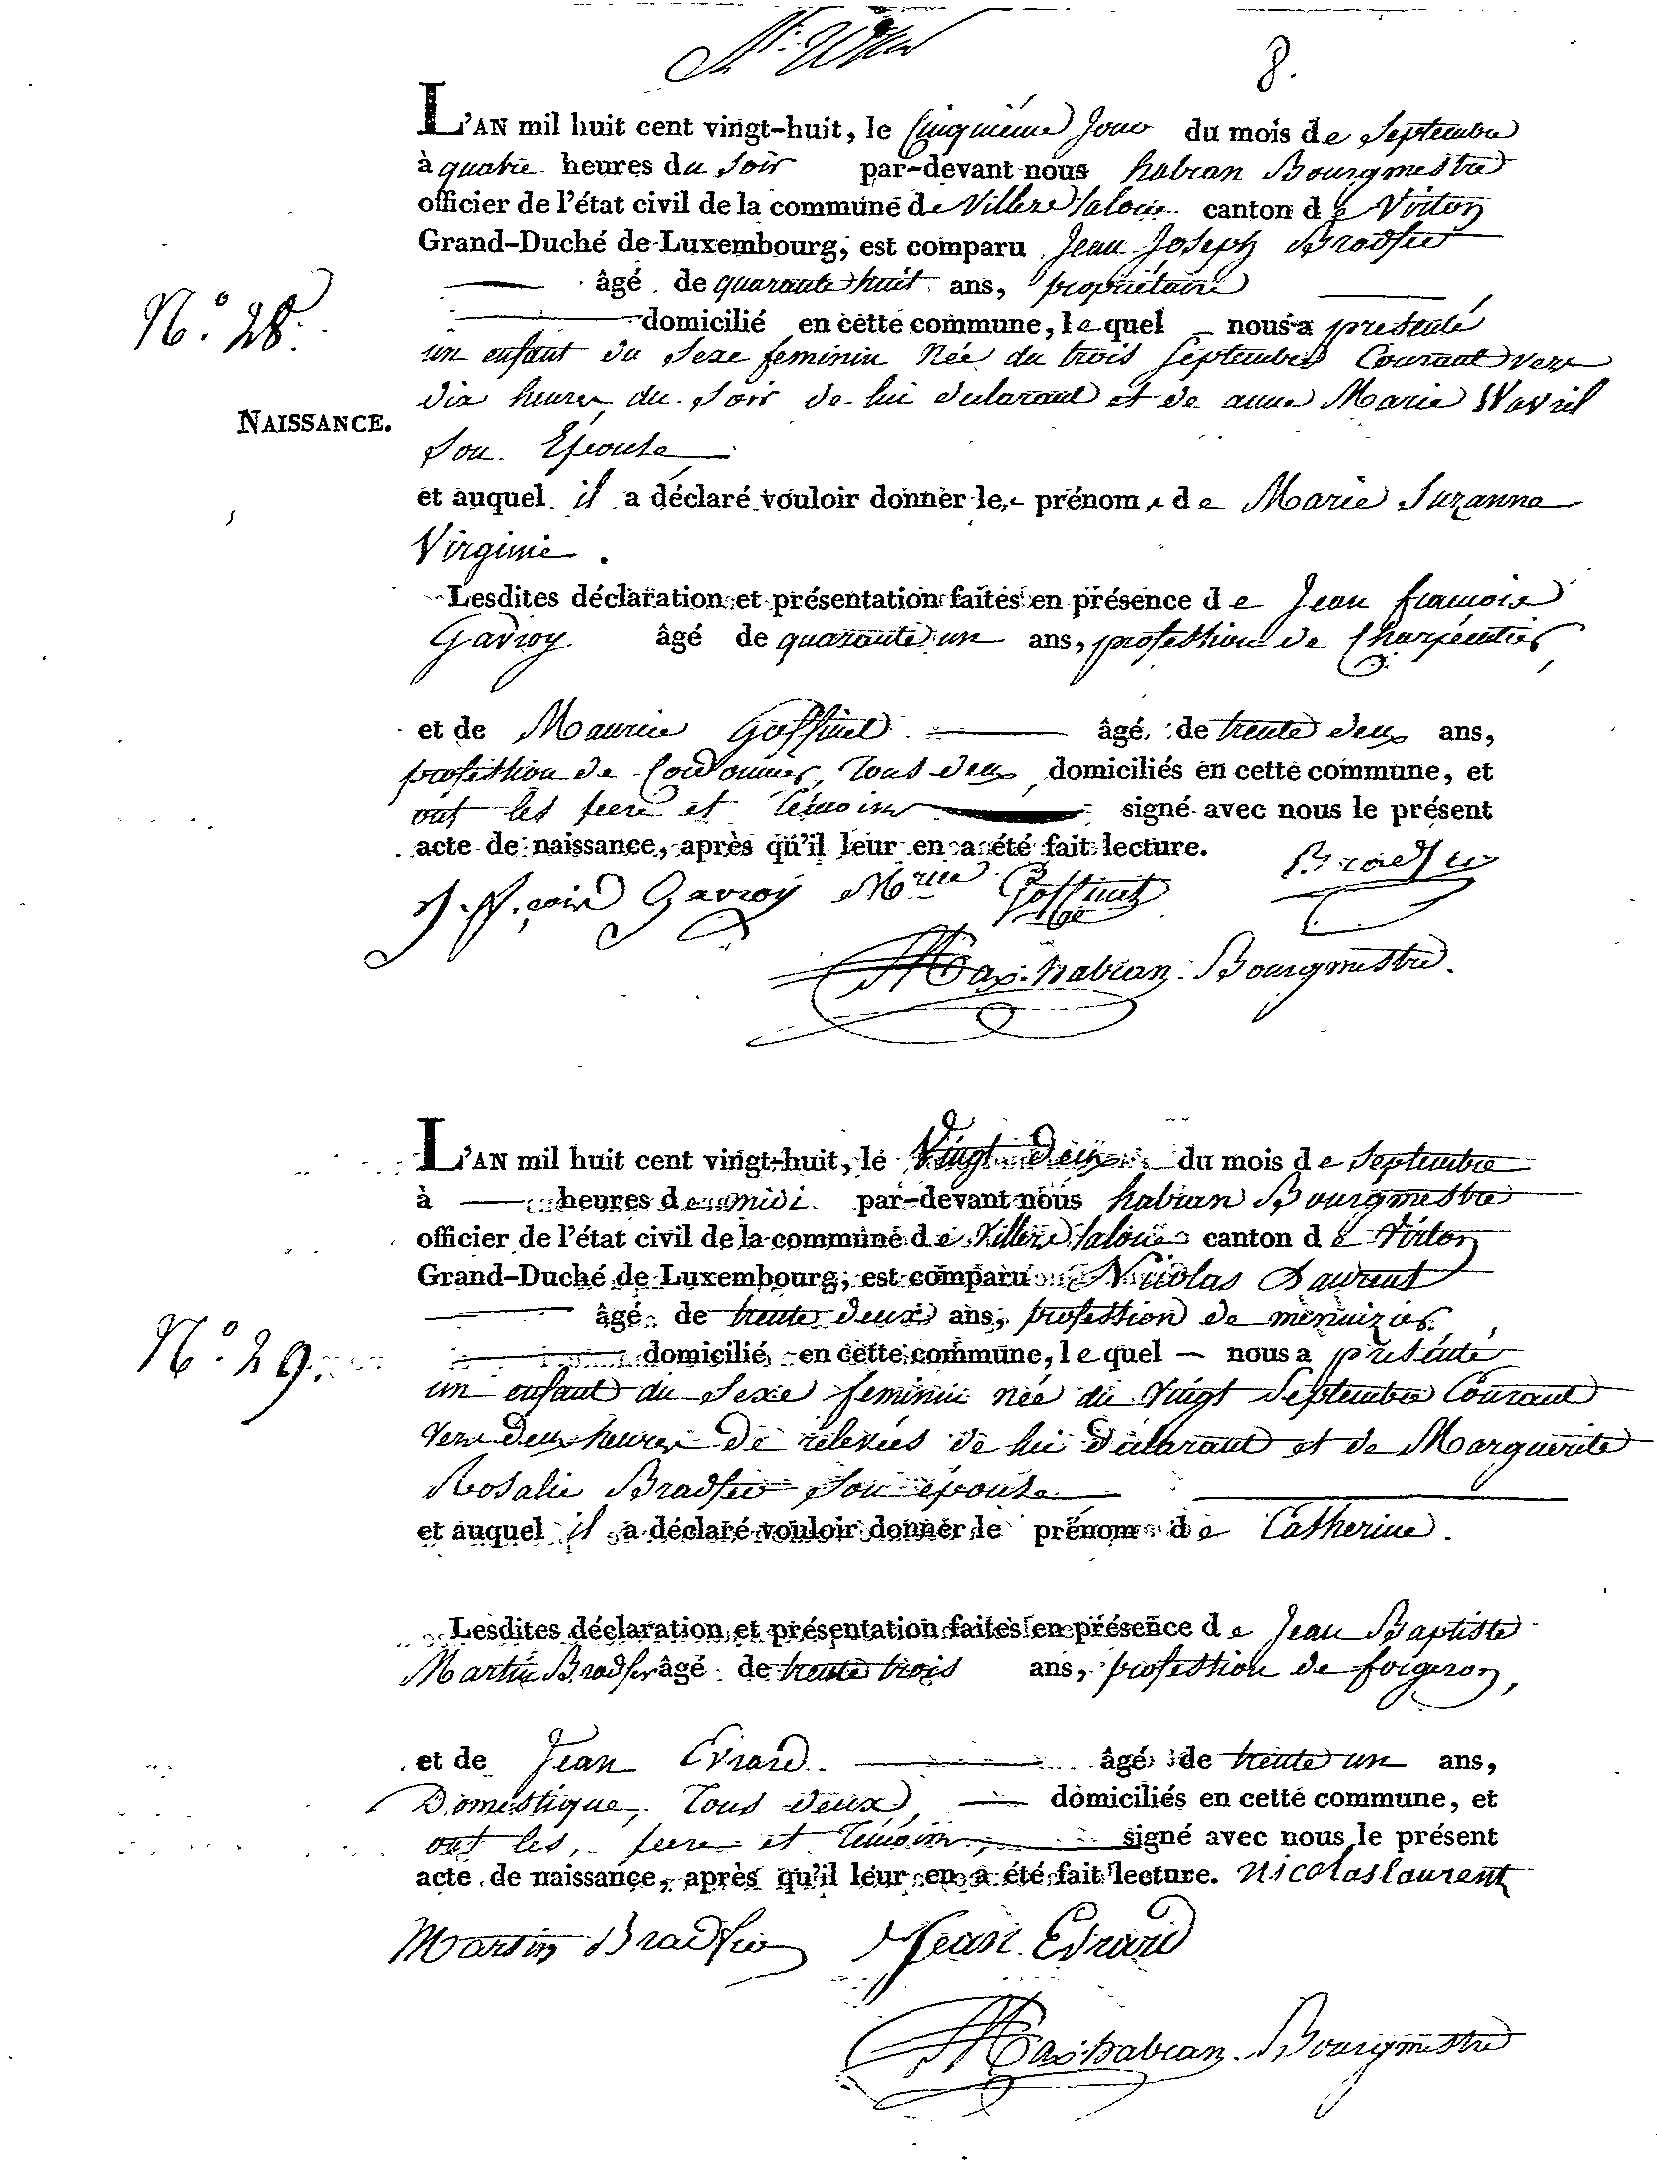 8.
L'AN mil huit cent vingt-huit, le Cinquième Jour du mois de Septembre
à quatre heures du Soir par-devant nous habran Bourgmestre
officier de l'état civil de la commune de Villers Saloue canton de Virton
Grand-Duché de Luxembourg, est comparu Jean Joseph Bradfer
âgé de quarante huit ans, propriétaire
N.° 28.
domicilié en cette commune, lequel nous a présenté
un enfant du Sexe feminin Née du trois Septembre Courant vers
dix heures du Soir de lui déclarant et de anne Marie Wavril
NAISSANCE.
Son Epouse
et auquel il a déclaré vouloir donner les prénoms de Marie Suzanne
Virginie.
Lesdites déclaration et présentation faites en présence de Jean francois
Gavroy âgé de quarante un ans, profession de Charpentier,
et de Maurice Goffinet âgé de trente deux ans,
profession de Cordonnier, Tous deux domiciliés en cette commune, et
ont les peere et témoins signé avec nous le présent
acte de naissance, après qu'il leur en a été fait lecture. Bradfer
J. f. çois Gavroy Mrice Goffinet
Max. habran. Bourgmestre.
L'AN mil huit cent vingt-huit, le Vingt deux du mois de Septembre
à heures de midi par-devant nous habran Bourgmestre
officier de l'état civil de la commune de Villers Saloue canton de Virton
Grand-Duché de Luxembourg, est comparu Nicolas Laurent
âgé de trente deux ans, profession de menuizier
N.° 29.
domicilié en cette commune, lequel nous a présenté
un enfant du Sexe feminin née du vingt Septembre Courant
vers deux heures de relevées de lui déclarant et de Marguerite
Rosalie Bradfer Son épouse
et auquel il a déclaré vouloir donner le prénom de Catherine.
Lesdites déclaration et présentation faites en présence de Jean Baptiste
Martin Bradfer âgé de trente trois ans, profession de forgeron,
et de Jean Evrard âgé de trente un ans,
Domestique, Tous deux, domiciliés en cette commune, et
ont les peere et témoins, signé avec nous le présent
acte de naissance, après qu'il leur en a été fait lecture. nicolas laurent
Martin Bradfer Jean Evrard
Max. habran. Bourgmestre